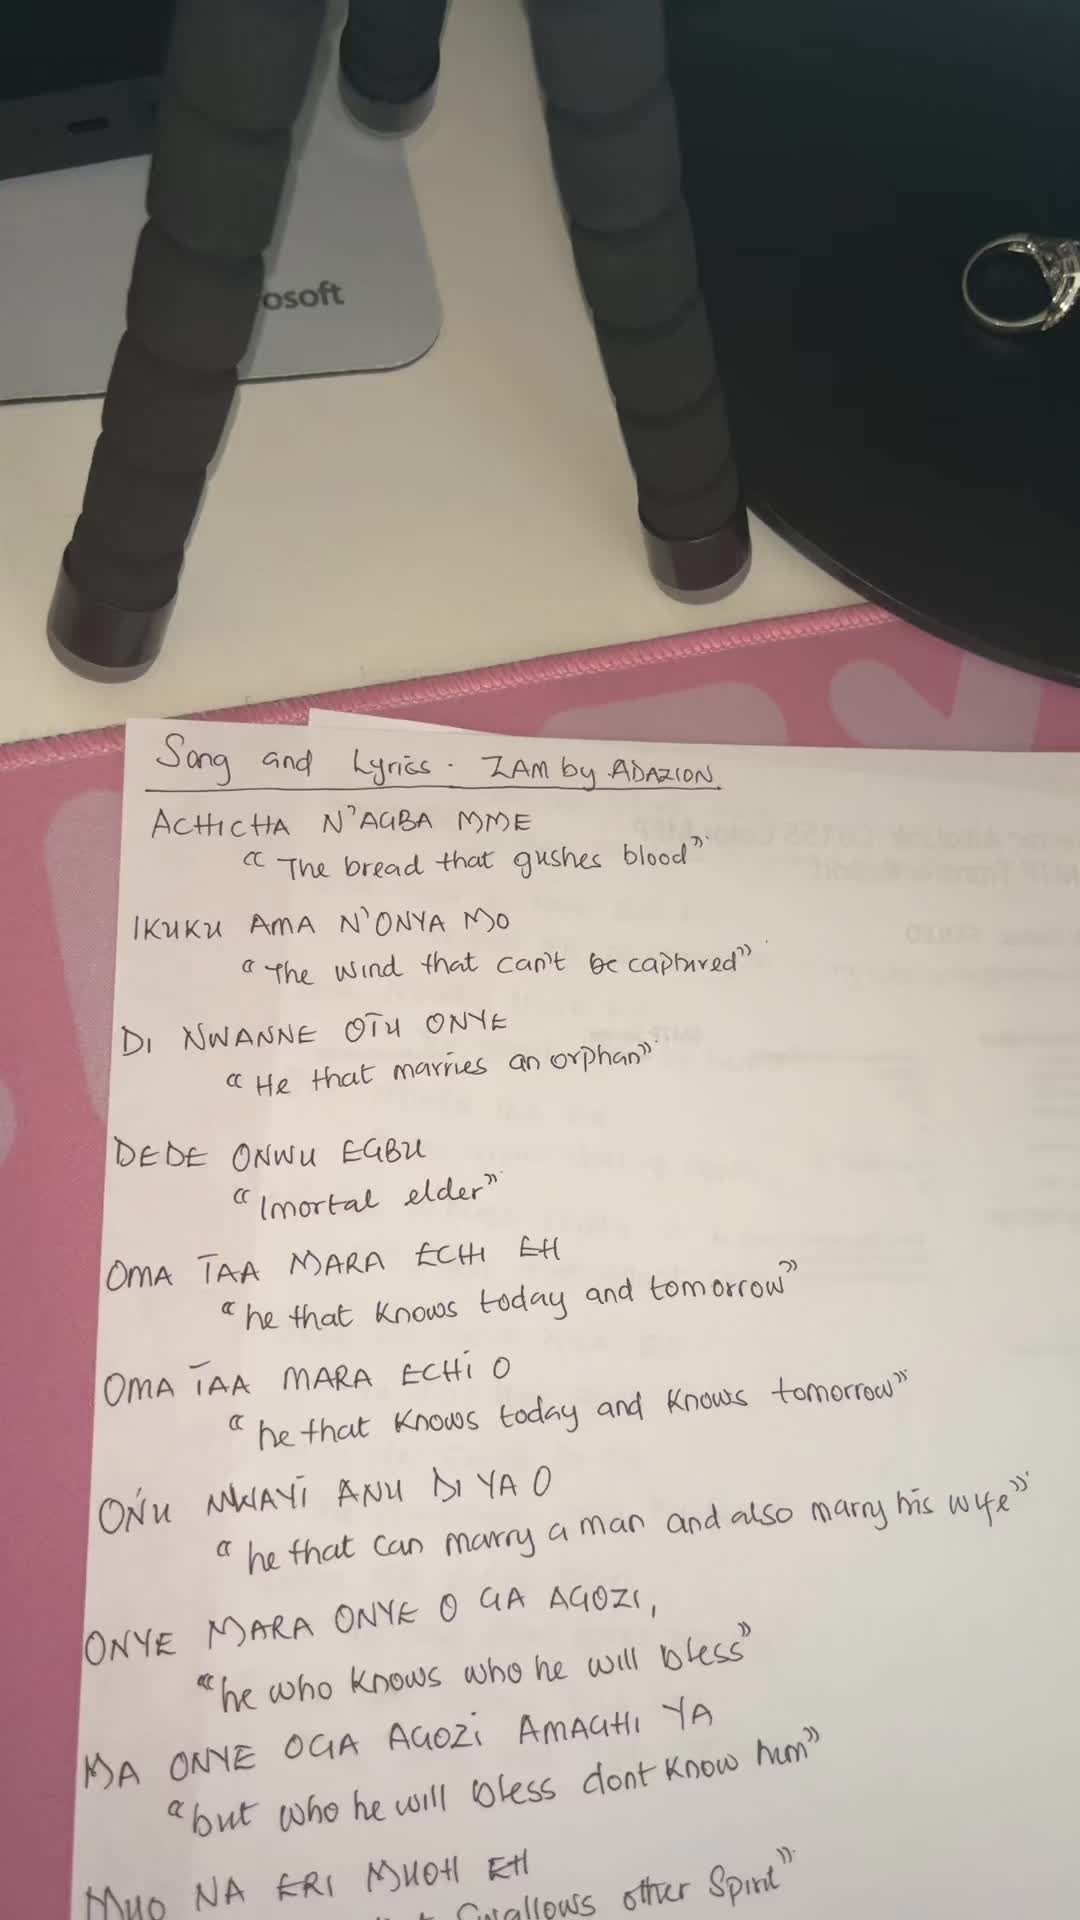 osoft
Song and Lyrics. ZAM by ADAZION
ACHICHA N'AGBA MME
"The bread that gushes blood".
IKUKU AMA N'ONYA MO
"The wind that can't be captured".
DI NWANNE OTU ONYE
"He that marries an orphan".
DEDE ONWU EGBU
"Imortal elder".
OMA TAA MARA ECHI EH
"he that knows today and tomorrow"
OMA TAA MARA ECHI O
"he that knows today and knows tomorrow".
ONU NWAYI ANU DI YA O
"he that can marry a man and also marry his wife".
ONYE MARA ONYE O GA AGOZI,
"he who knows who he will bless"
MA ONYE OGA AGOZI AMAGHI YA
"but who he will bless dont know him"
MUO NA ERI MUOH EH
swallows other Spirit".